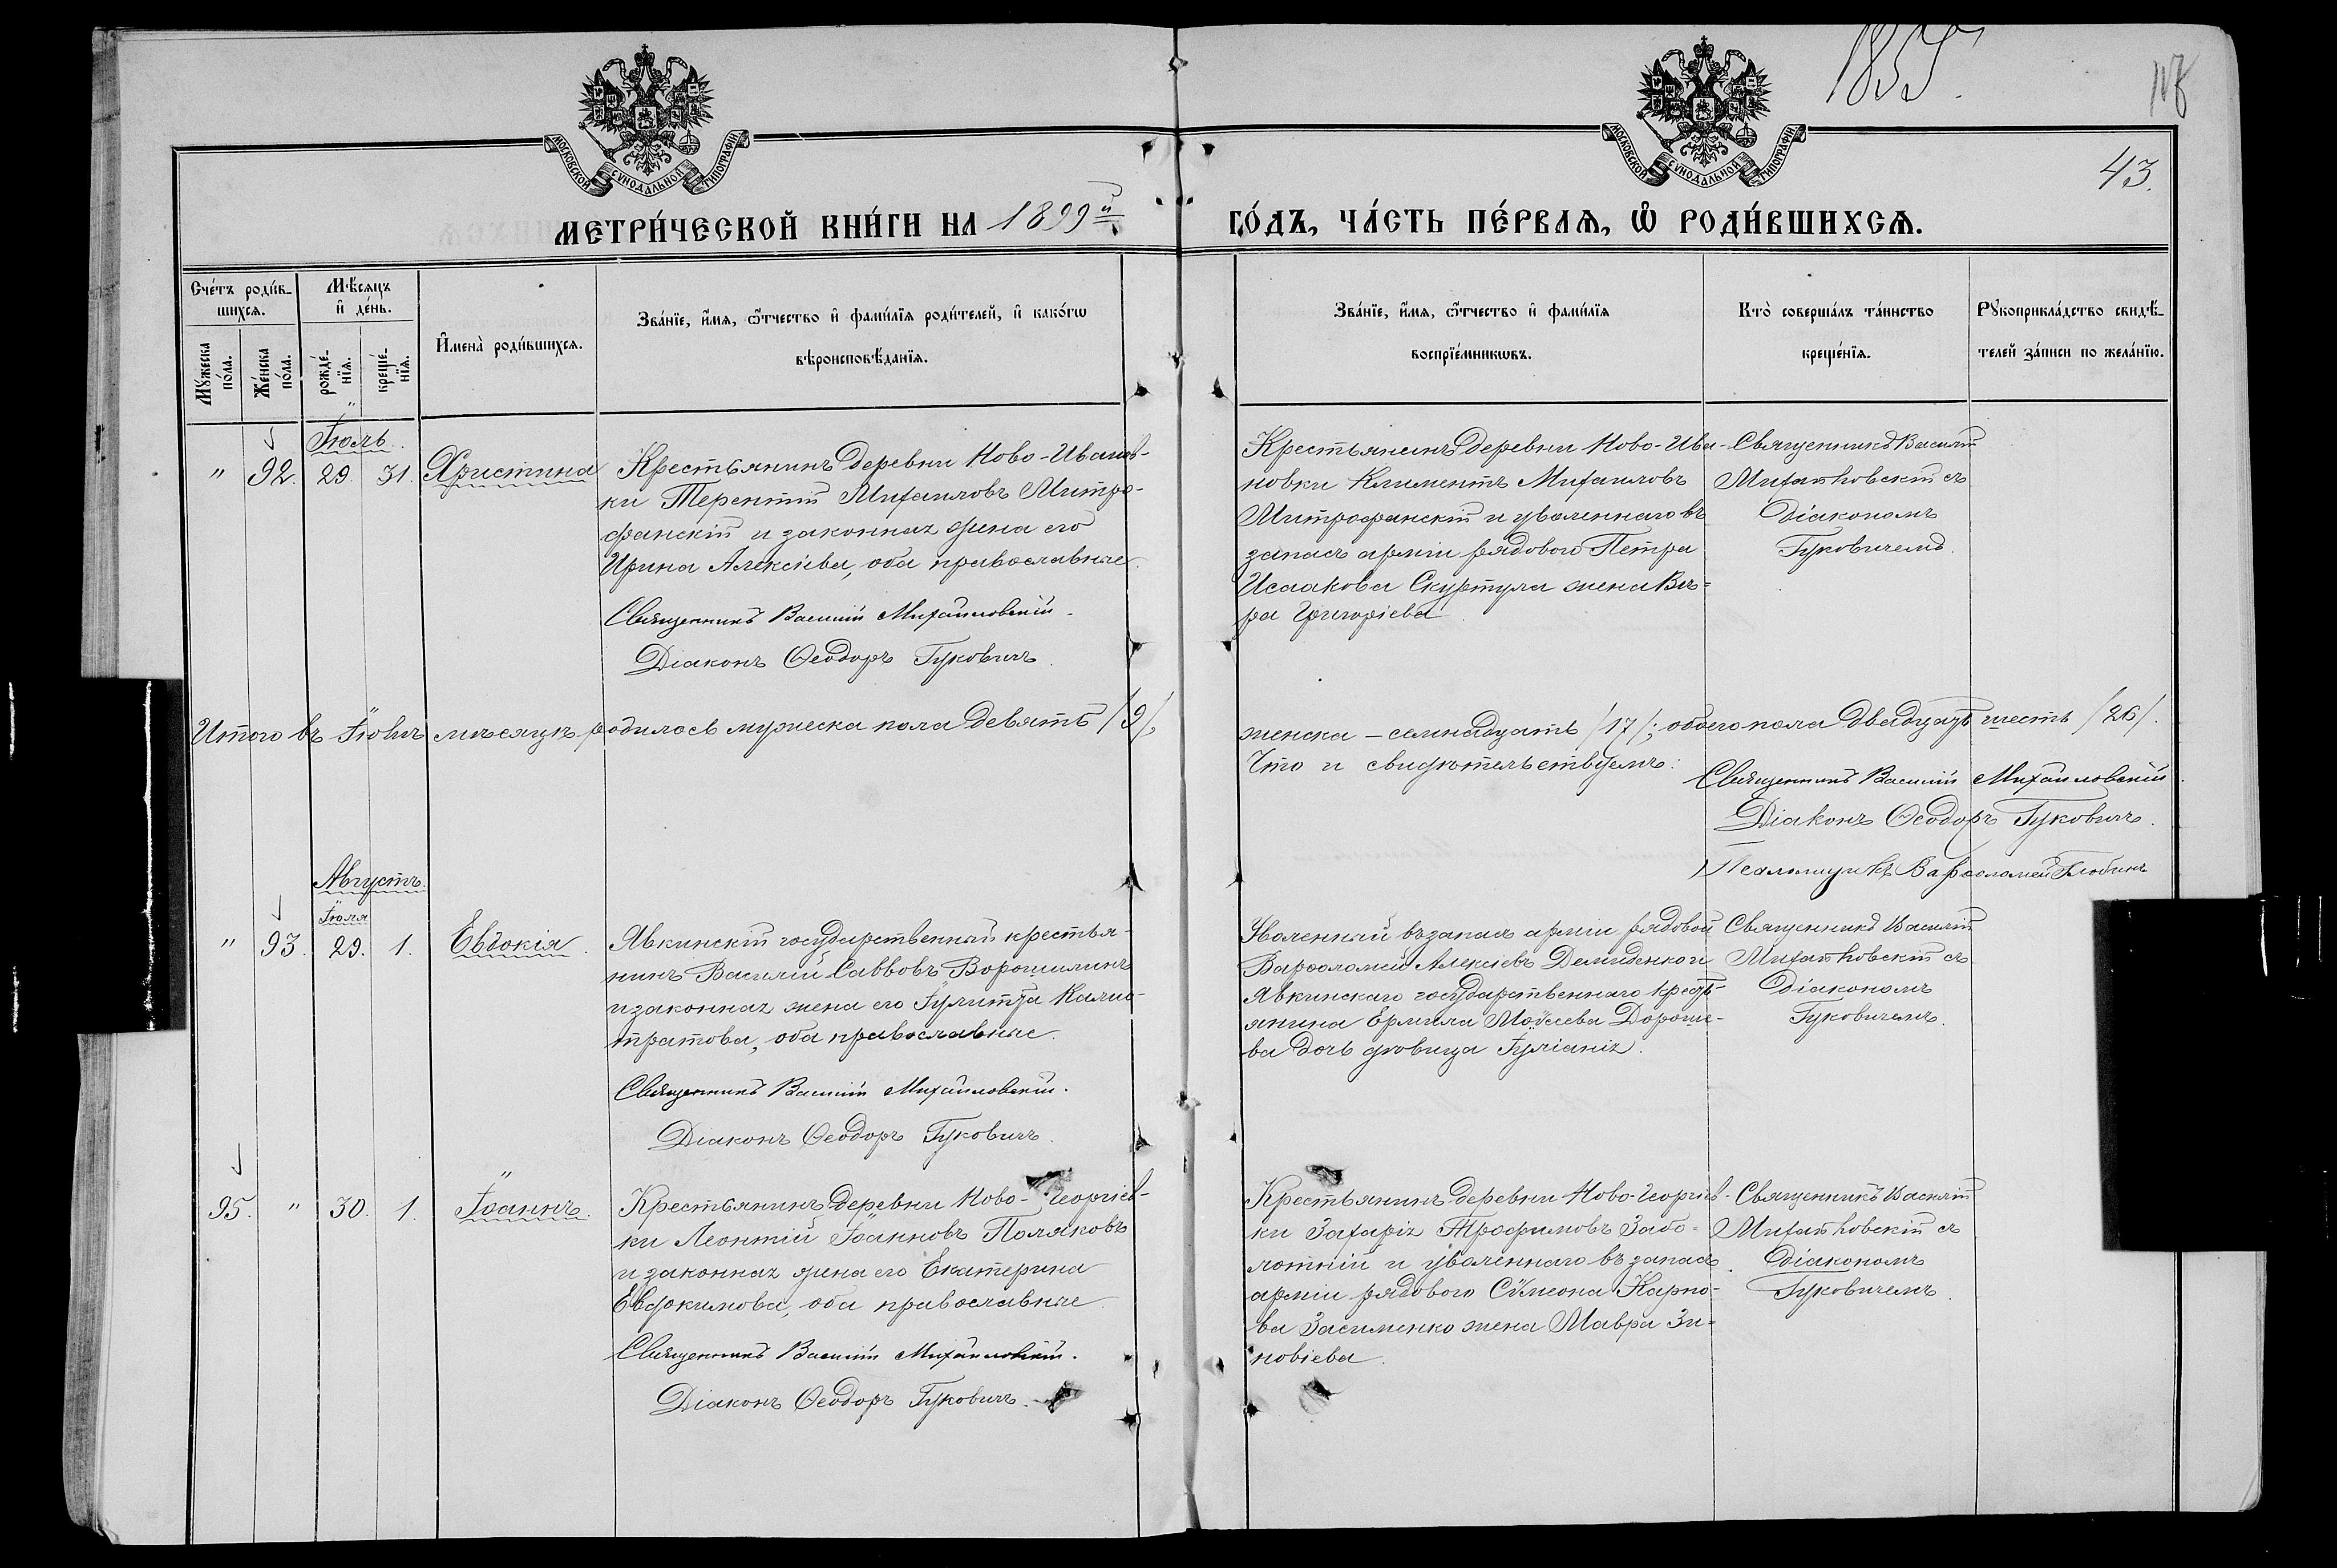 1855.
118
43.
МОСКОВСКОЙ СѴНОДАЛЬНОЙ ТИПОГРАФІИ
МОСКОВСКОЙ СѴНОДАЛЬНОЙ ТИПОГРАФІИ
МЕТРИ́ЧЕСКОЙ КНИ́ГИ НА 1899й ГО́ДЪ, ЧА́СТЬ ПЕ́РВАѦ, Ѽ РОДИ́ВШИХСѦ.
Сче́тъ роди́в-
шихсѧ.
Мꙋ́жеска по́ла.
Же́нска по́ла.
Мѣ́сѧцъ
и҆ де́нь.
рожде́-
нїѧ.
креще́-
нїѧ.
И҆мена̀ роди́вшихсѧ.
Зва́нїе, и҆́мѧ, ѻ҆́тчество и҆ фами́лїѧ роди́телей, и҆ како́гѡ
вѣроисповѣ́данїѧ.
Зва́нїе, и҆́мѧ, ѻ҆́тчество и҆ фами́лїѧ
воспрїе́мникѡвъ.
Кто̀ соверша́лъ та́инство
креще́нїѧ.
Рꙋкоприкла́дство свидѣ́-
телей за́писи по жела́нїю.
Іюль.
" 92. 29. 31. Христина
Крестьянинъ деревни Ново-Иванов-
ки Терентій Михаиловъ Митро-
фанскій и законная жена его
Ирина Алексіева, оба православные.
Священникъ Василій Михайловскій.
Діаконъ Ѳеодоръ Гуковичъ.
Крестьянинъ деревни Ново-Ива-
новки Климентъ Михаиловъ
Митрофанскій и уволеннаго въ
запасъ арміи рядового Петра
Исаакова Скуртула жена Вѣ-
ра Григоріева.
Священникъ Василій
Михайловскій съ
Діакономъ
Гуковичемъ.
Итого въ Іюлѣ мѣсяцѣ родилось мужеска пола девять /9/,
женска – семнадцать /17/; обоего пола двадцать шесть /26/.
Что и свидѣтельствуемъ:
Священникъ Василій Михайловскій.
Діаконъ Ѳеодоръ Гуковичъ.
Псаломщикъ Варѳоломей
Августъ.
Іюля
" 93. 29. 1. Евдокія.
Явкинскій государственный крестья-
нинъ Василій Саввовъ Ворошилинъ
и законная жена его Іулитта Калис-
тратова, оба православные.
Священникъ Василій Михайловскій.
Діаконъ Ѳеодоръ Гуковичъ.
Уволенный въ запасъ арміи рядовой
Варѳоломей Алексіевъ Демиденко и
Явкинскаго государственнаго кресть-
янина Ермила Моѵсеева Дороше-
ва дочь дѣвица Іуліанія.
Священникъ Василій
Михайловскій съ
Діакономъ
Гуковичемъ.
95. " 30. 1. Іоаннъ.
Крестьянинъ деревни Ново-Георгіев-
ки Леонтій Іоанновъ Поляковъ
и законная жена его Екатерина
Евдокимова, оба православные
Священникъ Василій Михайловскій.
Діаконъ Ѳеодоръ Гуковичъ.
Крестьянинъ деревни Ново-Георгіев-
ки Захарія Трофимовъ Забо-
лотній и уволеннаго въ запасъ
арміи рядового Сѵмеона Карпо-
ва Засименко жена Мавра Зи-
новіева.
Священникъ Василій
Михайловскій съ
Діакономъ
Гуковичемъ.